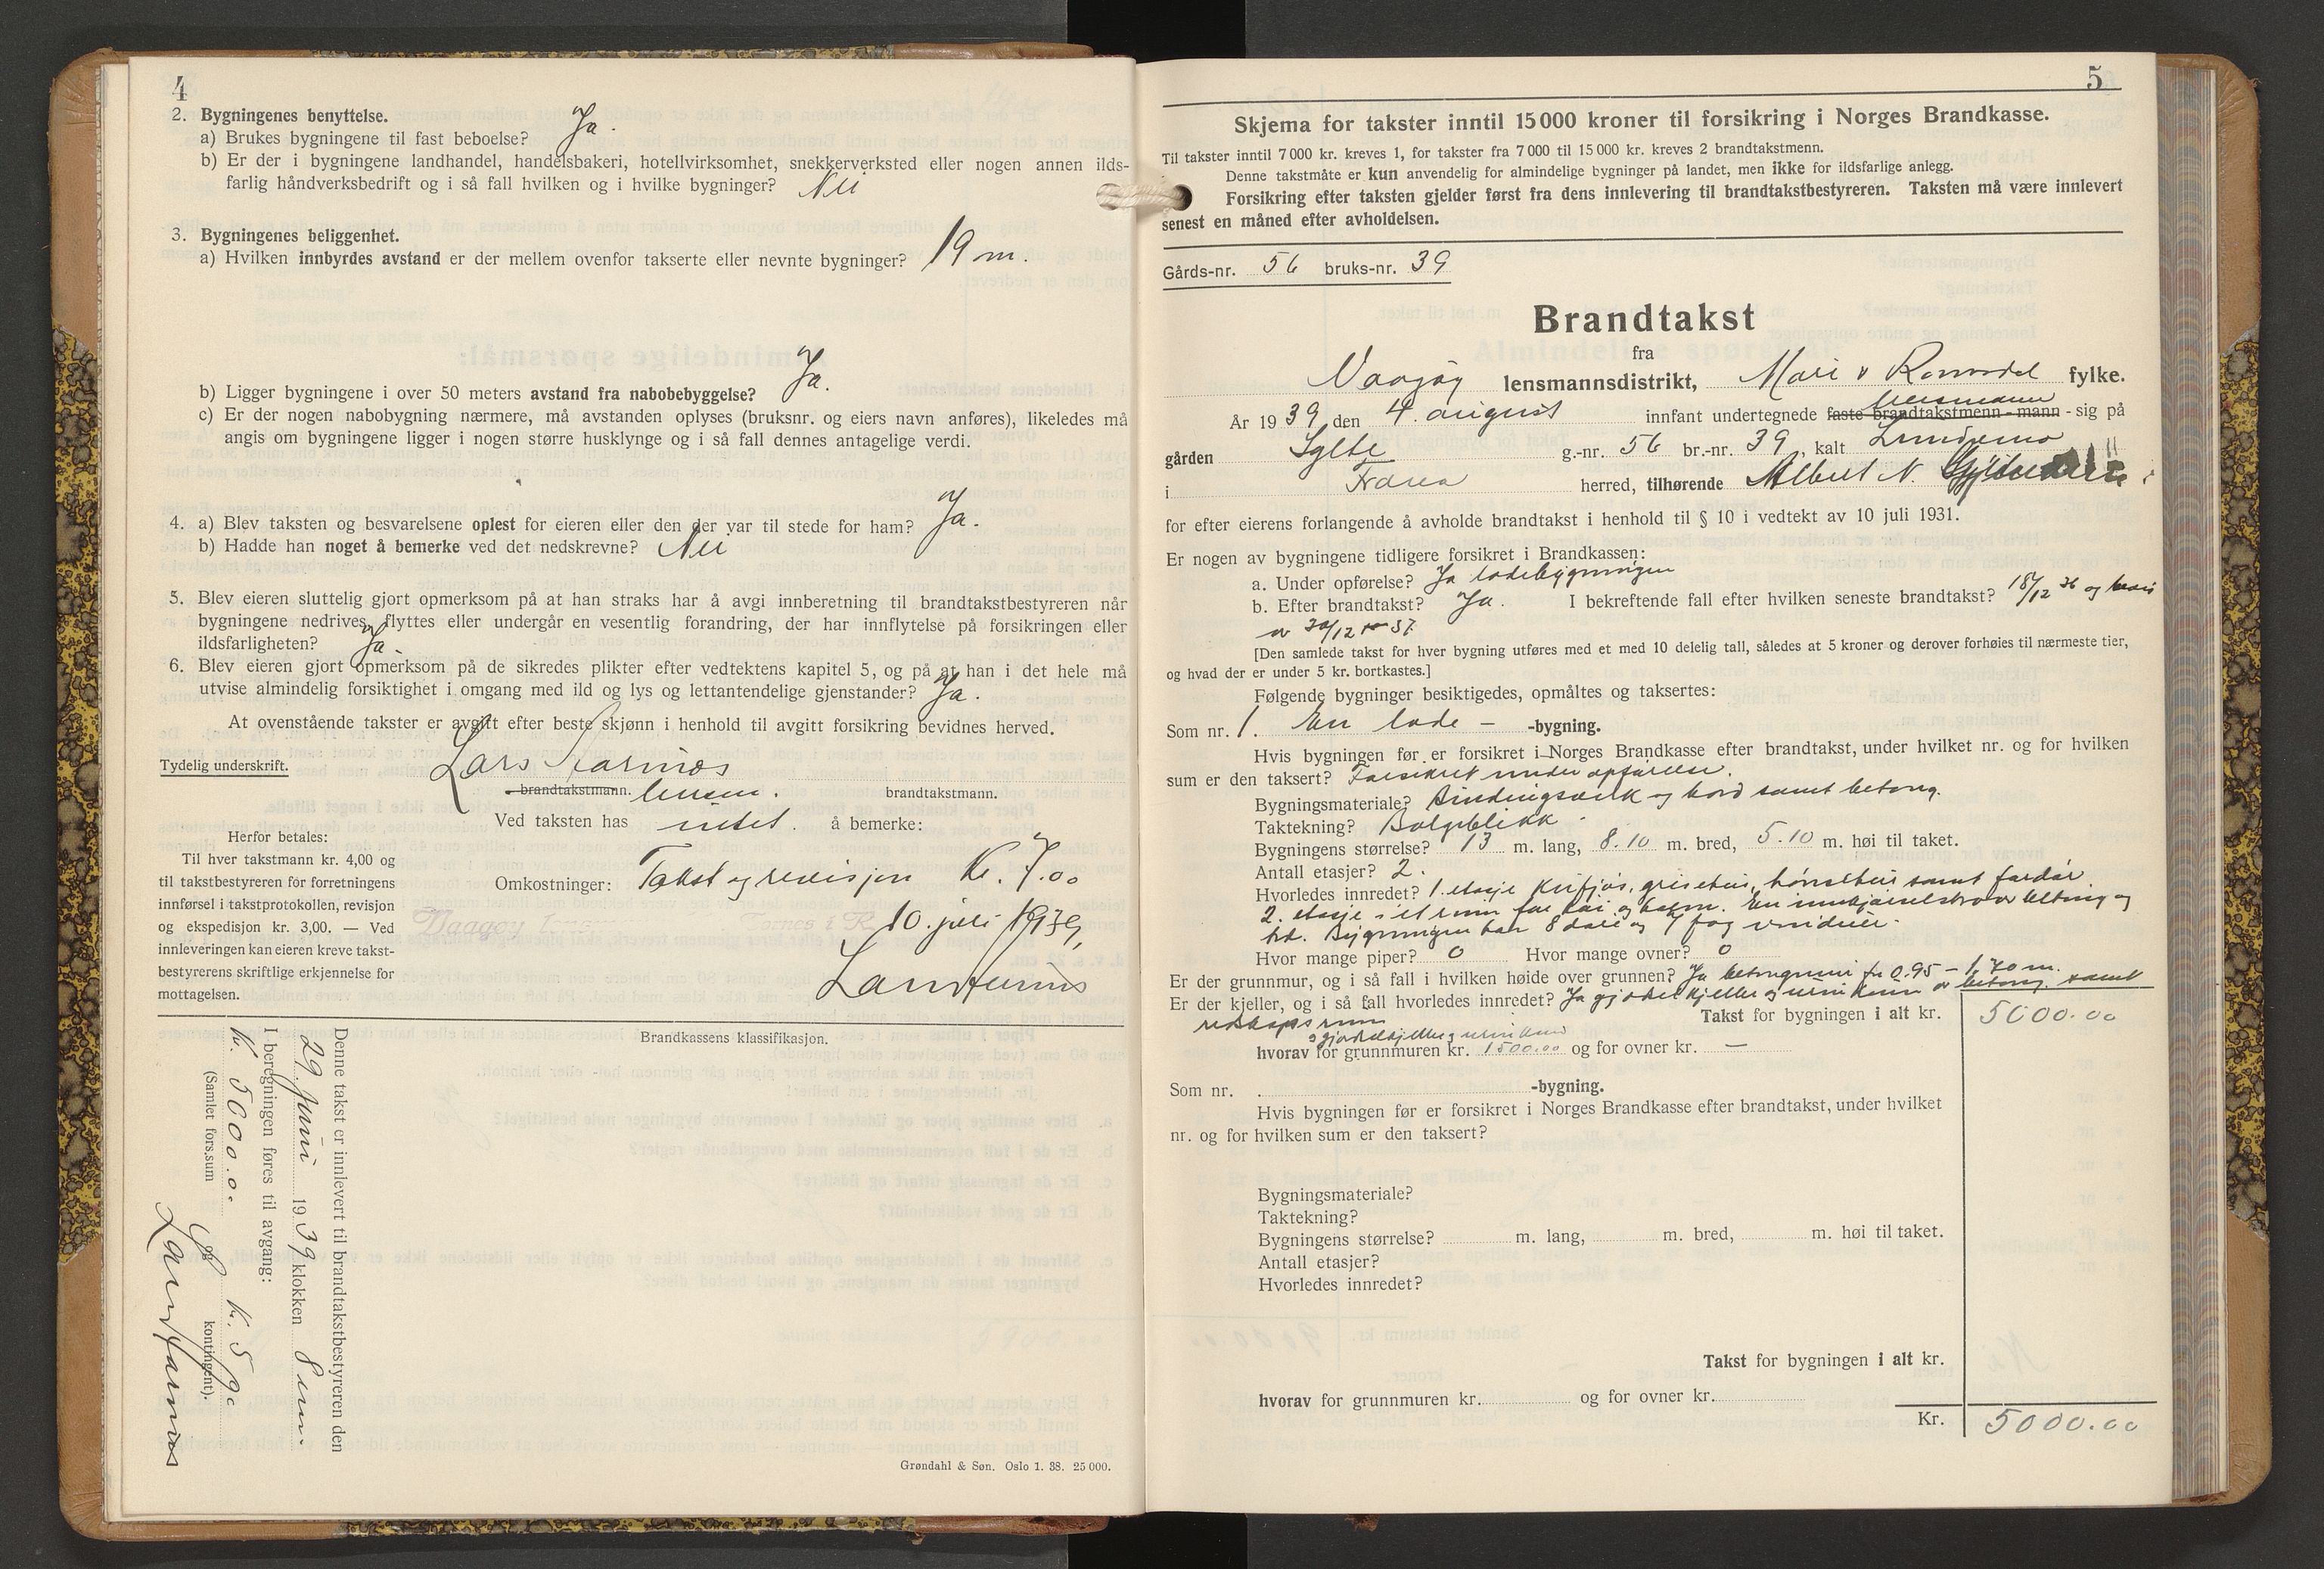 4
2. Bygningenes benyttelse.
a) Brukes bygningene til fast beboelse? Ja.
b) Er der i bygningene landhandel, handelsbakeri, hotellvirksomhet, snekkerverksted eller nogen annen ilds-
farlig håndverksbedrift og i så fall hvilken og i hvilke bygninger? Nei
3. Bygningenes beliggenhet.
a) Hvilken innbyrdes avstand er der mellem ovenfor takserte eller nevnte bygninger? 19 m.
b) Ligger bygningene i over 50 meters avstand fra nabobebyggelse? Ja.
c) Er der nogen nabobygning nærmere, må avstanden oplyses (bruksnr. og eiers navn anføres), likeledes må
angis om bygningene ligger i nogen større husklynge og i så fall dennes antagelige verdi.
4. a) Blev taksten og besvarelsene oplest for eieren eller den der var til stede for ham? Ja.
b) Hadde han noget å bemerke ved det nedskrevne? Nei
5. Blev eieren sluttelig gjort opmerksom på at han straks har å avgi innberetning til brandtakstbestyreren når
bygningene nedrives, flyttes eller undergår en vesentlig forandring, der har innflytelse på forsikringen eller
ildsfarligheten? Ja.
6. Blev eieren gjort opmerksom på de sikredes plikter efter vedtektens kapitel 5, og på at han i det hele må
utvise almindelig forsiktighet i omgang med ild og lys og lettantendelige gjenstander? Ja.
At ovenstående takster er avgitt efter beste skjønn i henhold til avgitt forsikring bevidnes herved.
Tydelig underskrift.
Lars Harnes
brandtakstmann. lensm. brandtakstmann.
Ved taksten has intet. å bemerke:
Herfor betales:
Til hver takstmann kr. 4,00 og
til takstbestyreren for forretningens
innførsel i takstprotokollen, revisjon
og ekspedisjon kr. 3,00. — Ved
innleveringen kan eieren kreve takst-
bestyrerens skriftlige erkjennelse for
mottagelsen.
Omkostninger: Takst og revisjon Kr. 7.00
10. juli 1939,
Lars Harnes
Brandkassens klassifikasjon.
Denne takst er innlevert til brandtakstbestyreren den
29. juni 1939 klokken 8 em.
I beregningen føres til avgang:
Kr. 5000.00 og Kr. 5.90
(Samlet fors.sum kontingent).
Lars Harnes
Grøndahl & Søn. Oslo 1. 38. 25 000.
5
Skjema for takster inntil 15 000 kroner til forsikring i Norges Brandkasse.
Til takster inntil 7 000 kr. kreves 1, for takster fra 7 000 til 15 000 kr. kreves 2 brandtakstmenn.
Denne takstmåte er kun anvendelig for almindelige bygninger på landet, men ikke for ildsfarlige anlegg.
Forsikring efter taksten gjelder først fra dens innlevering til brandtakstbestyreren. Taksten må være innlevert
senest en måned efter avholdelsen.
Gårds-nr. 56 bruks-nr. 39
Brandtakst
fra
Vaagøy lensmannsdistrikt, Møre o Romsdal fylke.
År 1939 den 4. august innfant undertegnede faste brandtakstmenn - mann - sig på
lensmann
gården Sylte g.-nr. 56 br.-nr. 39, kalt Lundemo
i Fræna herred, tilhørende Albert N.
for efter eierens forlangende å avholde brandtakst i henhold til § 10 i vedtekt av 10 juli 1931.
Er nogen av bygningene tidligere forsikret i Brandkassen:
a. Under opførelse? Ja ladebygningen
b. Efter brandtakst? Ja. I bekreftende fall efter hvilken seneste brandtakst? 18/12 36 og
av 30/12 37.
[Den samlede takst for hver bygning utføres med et med 10 delelig tall, således at 5 kroner og derover forhøies til nærmeste tier,
og hvad der er under 5 kr. bortkastes.]
Følgende bygninger besiktigedes, opmåltes og taksertes:
Som nr. 1. En lade — -bygning.
Hvis bygningen før er forsikret i Norges Brandkasse efter brandtakst, under hvilket nr. og for hvilken
sum er den taksert? Forsikret under opførelse.
Bygningsmateriale? Bindingsverk og bord samt betong.
Taktekning? Bølgeblikk.
Bygningens størrelse? 13 m. lang, 8.10 m. bred, 5.10 m. høi til taket.
Antall etasjer? 2.
Hvorledes innredet? 1. etasje kufjøs, grisehus, hønsehus samt fordør
2. etasje i et rum for høi og halm. En innkjørselsbro av betong og
tre. Bygningen har 8 dører og 7 fag vinduer.
Hvor mange piper? 0 Hvor mange ovner? 0
Er der grunnmur, og i så fall i hvilken høide over grunnen? Ja betongmur fra 0.95 - 1.70 m.
Er der kjeller, og i så fall hvorledes innredet? Ja gjødselkjeller og urinkum av betong samt
redskapsrum
Takst for bygningen i alt kr. 5000.00
og gjødselkjeller og urinkum
hvorav for grunnmuren kr. 1500.00 og for ovner kr. —
Som nr. . -bygning.
Hvis bygningen før er forsikret i Norges Brandkasse efter brandtakst, under hvilket
nr. og for hvilken sum er den taksert?
Bygningsmateriale?
Taktekning?
Bygningens størrelse? m. lang, m. bred, m. høi til taket.
Antall etasjer?
Hvorledes innredet?
Takst for bygningen i alt kr.
hvorav for grunnmuren kr. og for ovner kr.
Kr. 5000.00